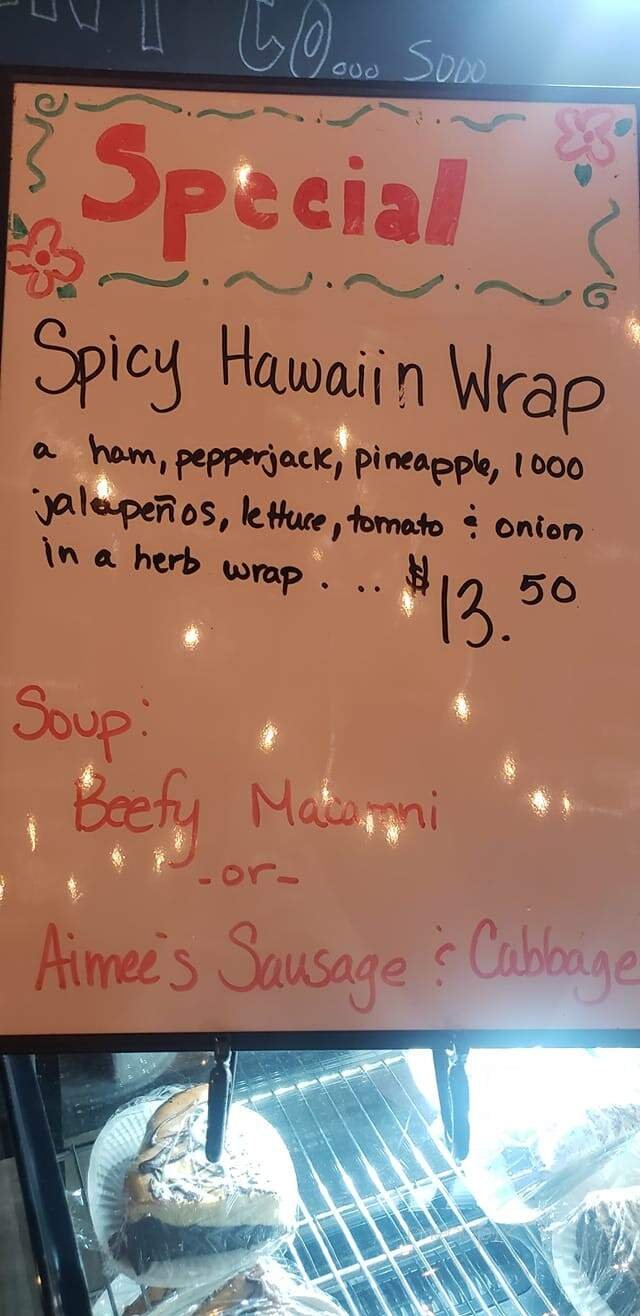 Special
Spicy Hawaiin Wrap
a ham, pepperjack, pineapple, 1000
jalapeños, lettuce, tomato & onion
in a herb wrap . . . $13.50
Soup:
Beefy Macaroni
-or-
Aimee's Sausage & Cabbage